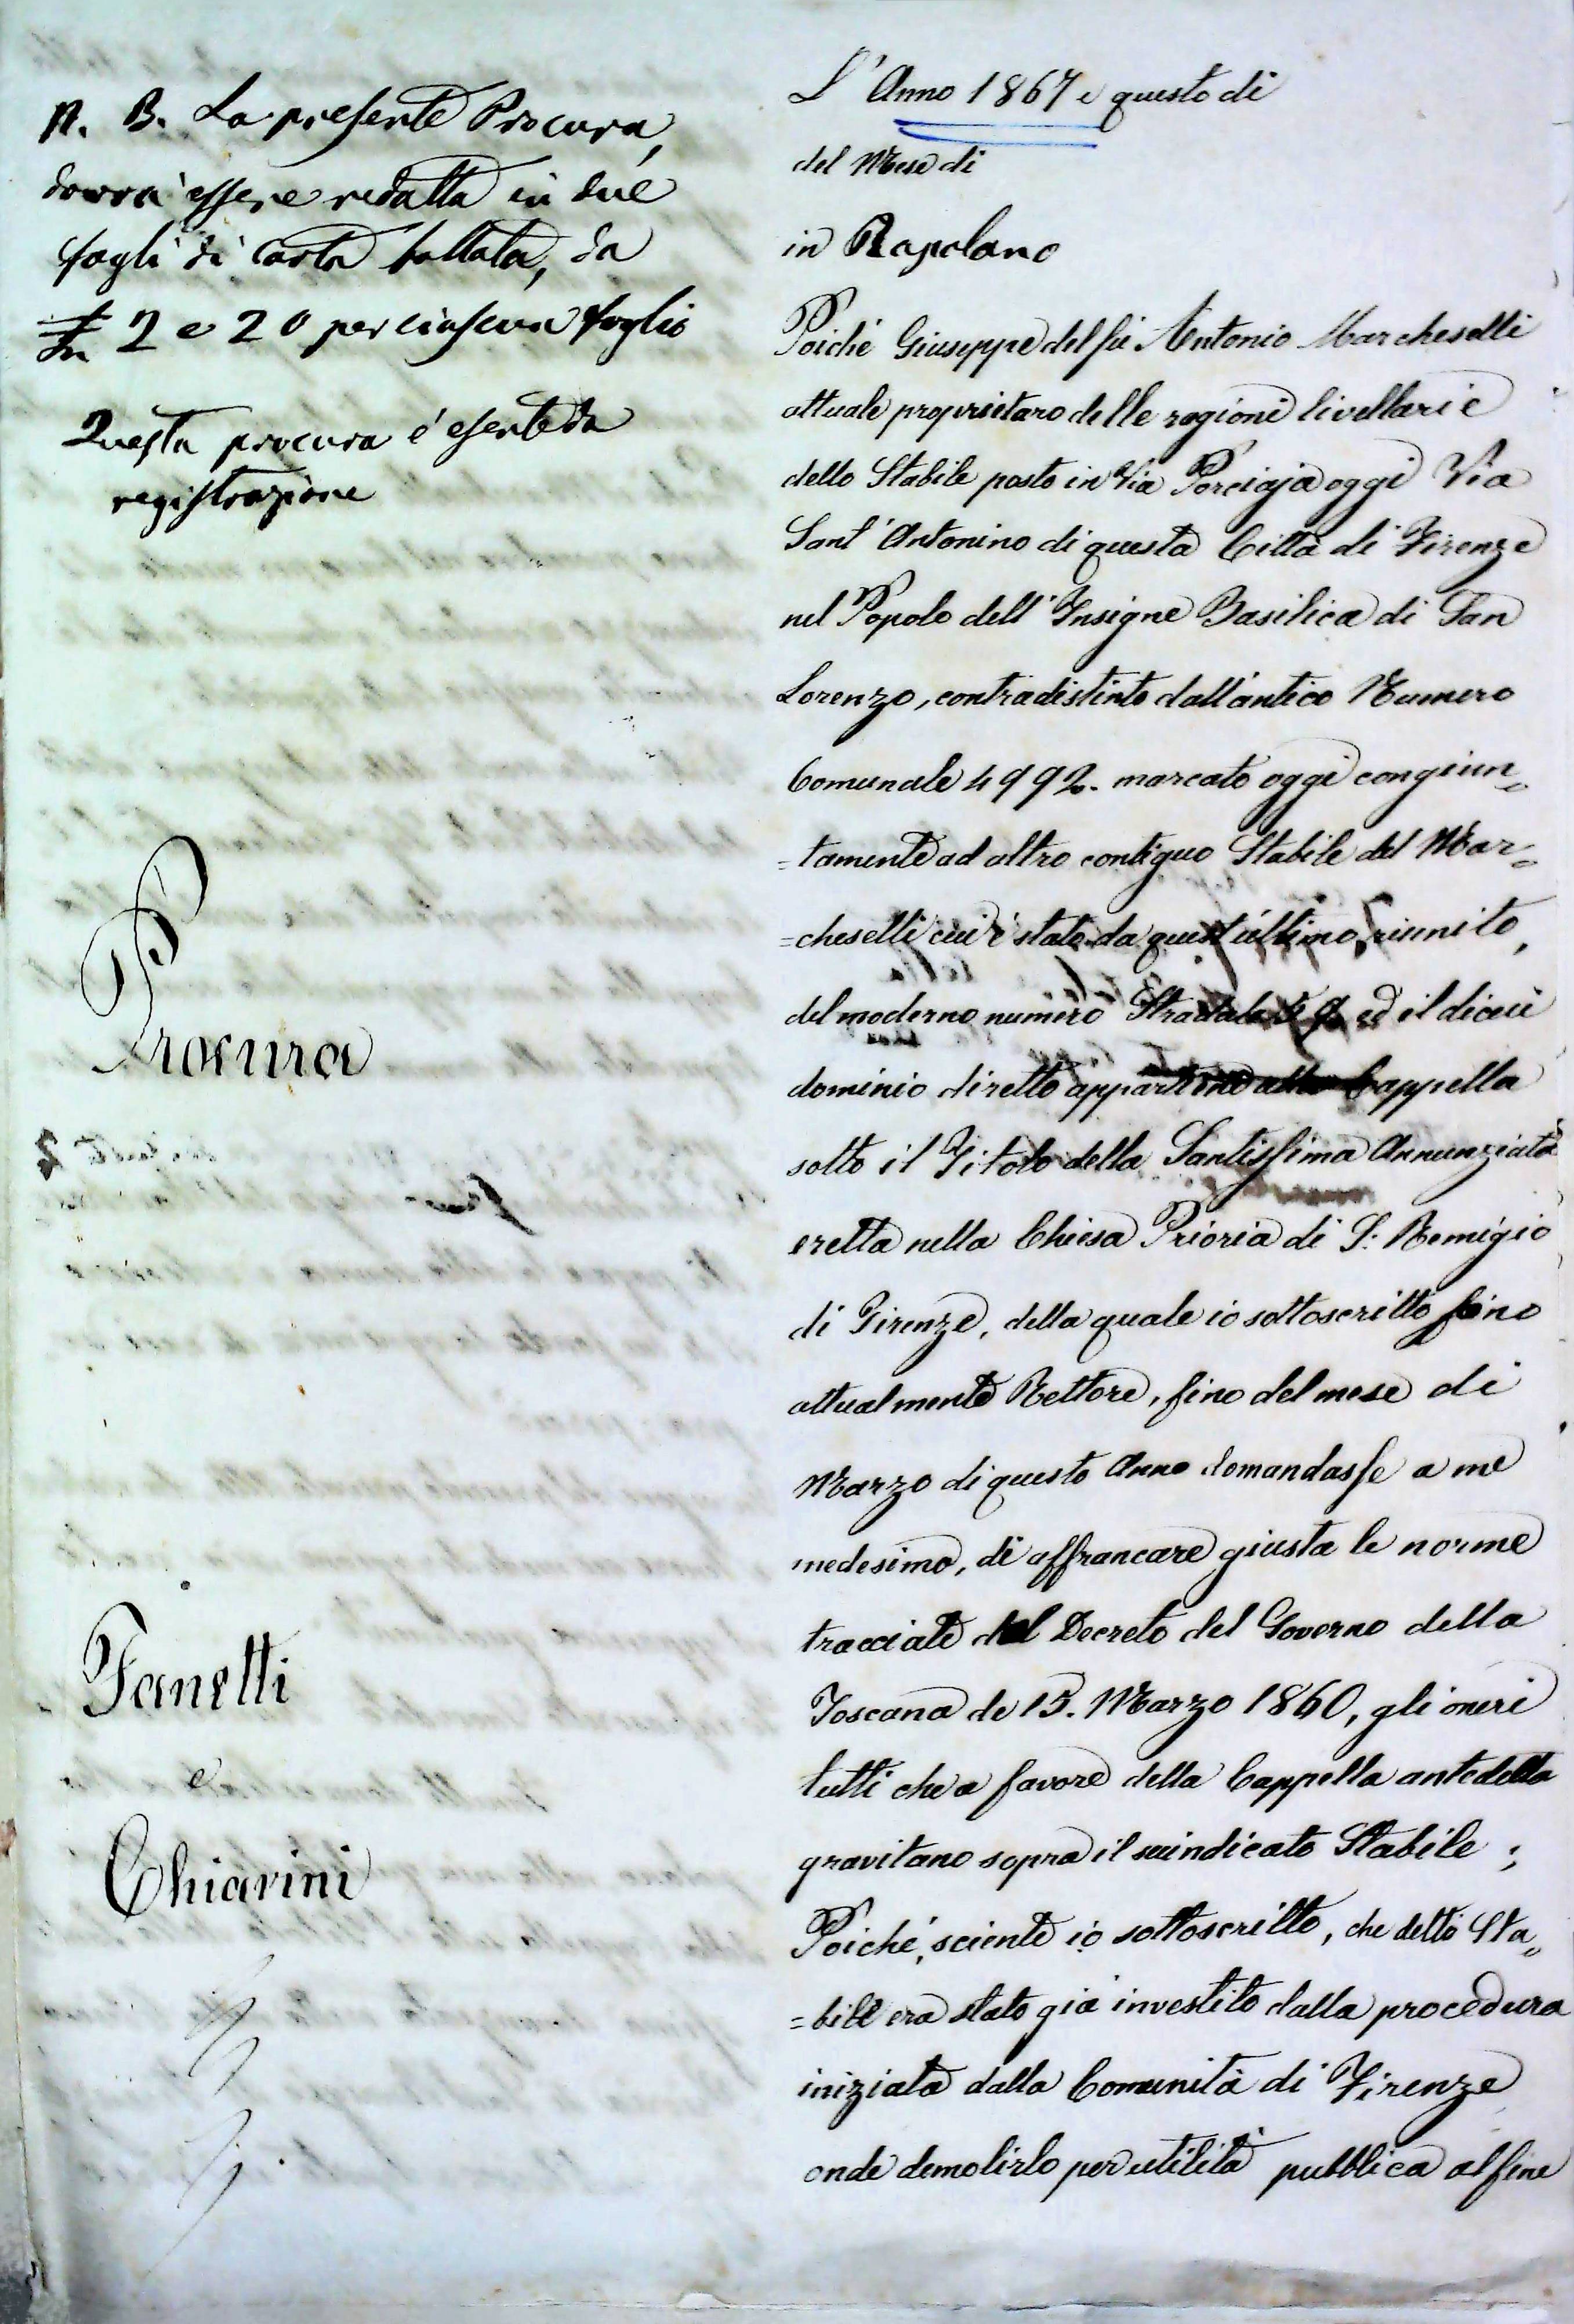 N. B. La presente Procura,
dovrà essere redatta in due
fogli di carta bollata, da
2 e 20 per ciascun foglio
Questa procura è esente da
registrazione
Procura
Fanetti
e
Chiarini
L'Anno 1867 e questo di
del Mese di
in Rapolano
Poiché Giuseppe del fu Antonio Marcheselli
attuale proprietaro delle ragioni livellarie
dello Stabile posto in Via Porciaja oggi Via
Sant'Antonino di questa Città di Firenze
nel Popolo dell'Insigne Basilica di San
Lorenzo, contradistinto dall'antico Numero
Comunale 4992. marcato oggi congiun„
=tamente ad altro contiguo Stabile del Mar=
=cheselli cui è stato da quest'ultimo riunito,
del moderno numero Stradale ed il di cui
dominio diretto appartiene alla Cappella
sotto il Titolo della Santissima Annunziata
eretta nella Chiesa Prioria di S: Remigio
di Firenze, della quale io sottoscritto sono
attualmente Rettore, fino del mese di
Marzo di questo Anno domandasse a me
medesimo, di affrancare giusta le norme
tracciate dal Decreto del Governo della
Toscana de 15. Marzo 1860, gli oneri
tutti che a favore della Cappella antedetta
gravitano sopra il suindicato Stabile ;
Poiché, sciente io sottoscritto, che detto Sta„
=bile era stato già investito dalla procedura
iniziata dalla Comunità di Firenze
onde demolirlo per utilità pubblica al fine